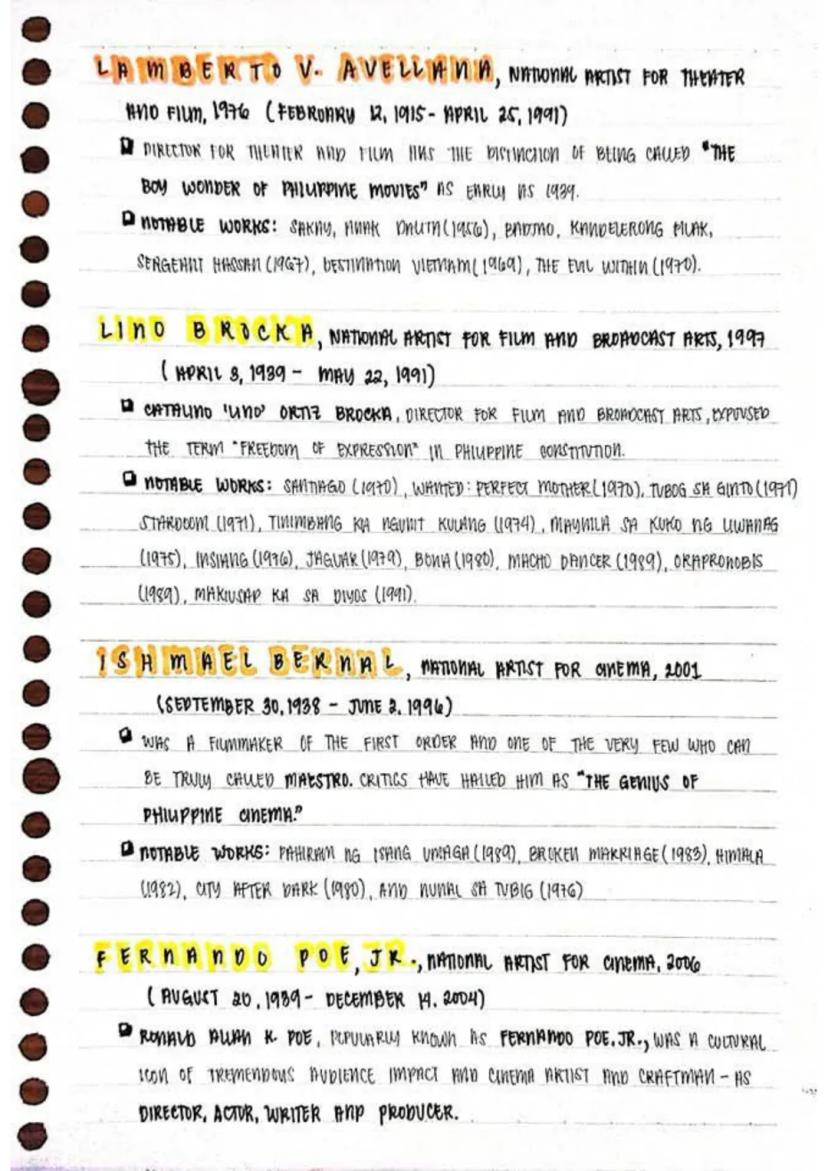 LAMBERTO V. AVELLANA, NATIONAL ARTIST FOR THEATER
AND FILM, 1976 (FEBRUARY 12, 1915 - APRIL 25, 1991)
DIRECTOR FOR THEATER AND FILM HAS THE DISTINCTION OF BEING CALLED "THE
BOY WONDER OF PHILIPPINE MOVIES" AS EARLY AS 1939.
NOTABLE WORKS: SAKAY, ANAK DALITA (1956), BADJAO, KANDELERONG PILAK,
SERGEANT HASSAN (1967), DESTINATION VIETNAM (1969), THE EVIL WITHIN (1970).
LINO BROCKA, NATIONAL ARTIST FOR FILM AND BROADCAST ARTS, 1997
(APRIL 3, 1939 - MAY 22, 1991)
CATALINO 'LINO' ORTIZ BROCKA, DIRECTOR FOR FILM AND BROADCAST ARTS, EXPOUSED
THE TERM "FREEDOM OF EXPRESSION" IN PHILIPPINE CONSTITUTION.
NOTABLE WORKS: SANTIAGO (1970), WANTED: PERFECT MOTHER (1970), TUBOG SA GINTO (1971)
STARDOOM (1971), TINIMBANG KA NGUNIT KULANG (1974), MAYNILA SA KUKO NG LIWANAG
(1975), INSIANG (1976), JAGUAR (1979), BONA (1980), MACHO DANCER (1989), ORAPRONOBIS
(1989), MAKIUSAP KA SA DIYOS (1991).
ISHMAEL BERNAL, NATIONAL ARTIST FOR CINEMA, 2001
(SEPTEMBER 30, 1938 - JUNE 2, 1996)
WAS A FILMMAKER OF THE FIRST ORDER AND ONE OF THE VERY FEW WHO CAN
BE TRULY CALLED MAESTRO. CRITICS HAVE HAILED HIM AS "THE GENIUS OF
PHILIPPINE CINEMA."
NOTABLE WORKS: PAHIRAM NG ISANG UMAGA (1989), BROKEN MARRIAGE (1983), HIMALA
(1982), CITY AFTER DARK (1980), AND NUNAL SA TUBIG (1976)
FERNANDO POE, JR., NATIONAL ARTIST FOR CINEMA, 2006
(AUGUST 20, 1939 - DECEMBER 14, 2004)
RONALD ALLAN K. POE, POPULARLY KNOWN AS FERNANDO POE, JR., WAS A CULTURAL
ICON OF TREMENDOUS AUDIENCE IMPACT AND CINEMA ARTIST AND CRAFTMAN - AS
DIRECTOR, ACTOR, WRITER AND PRODUCER.